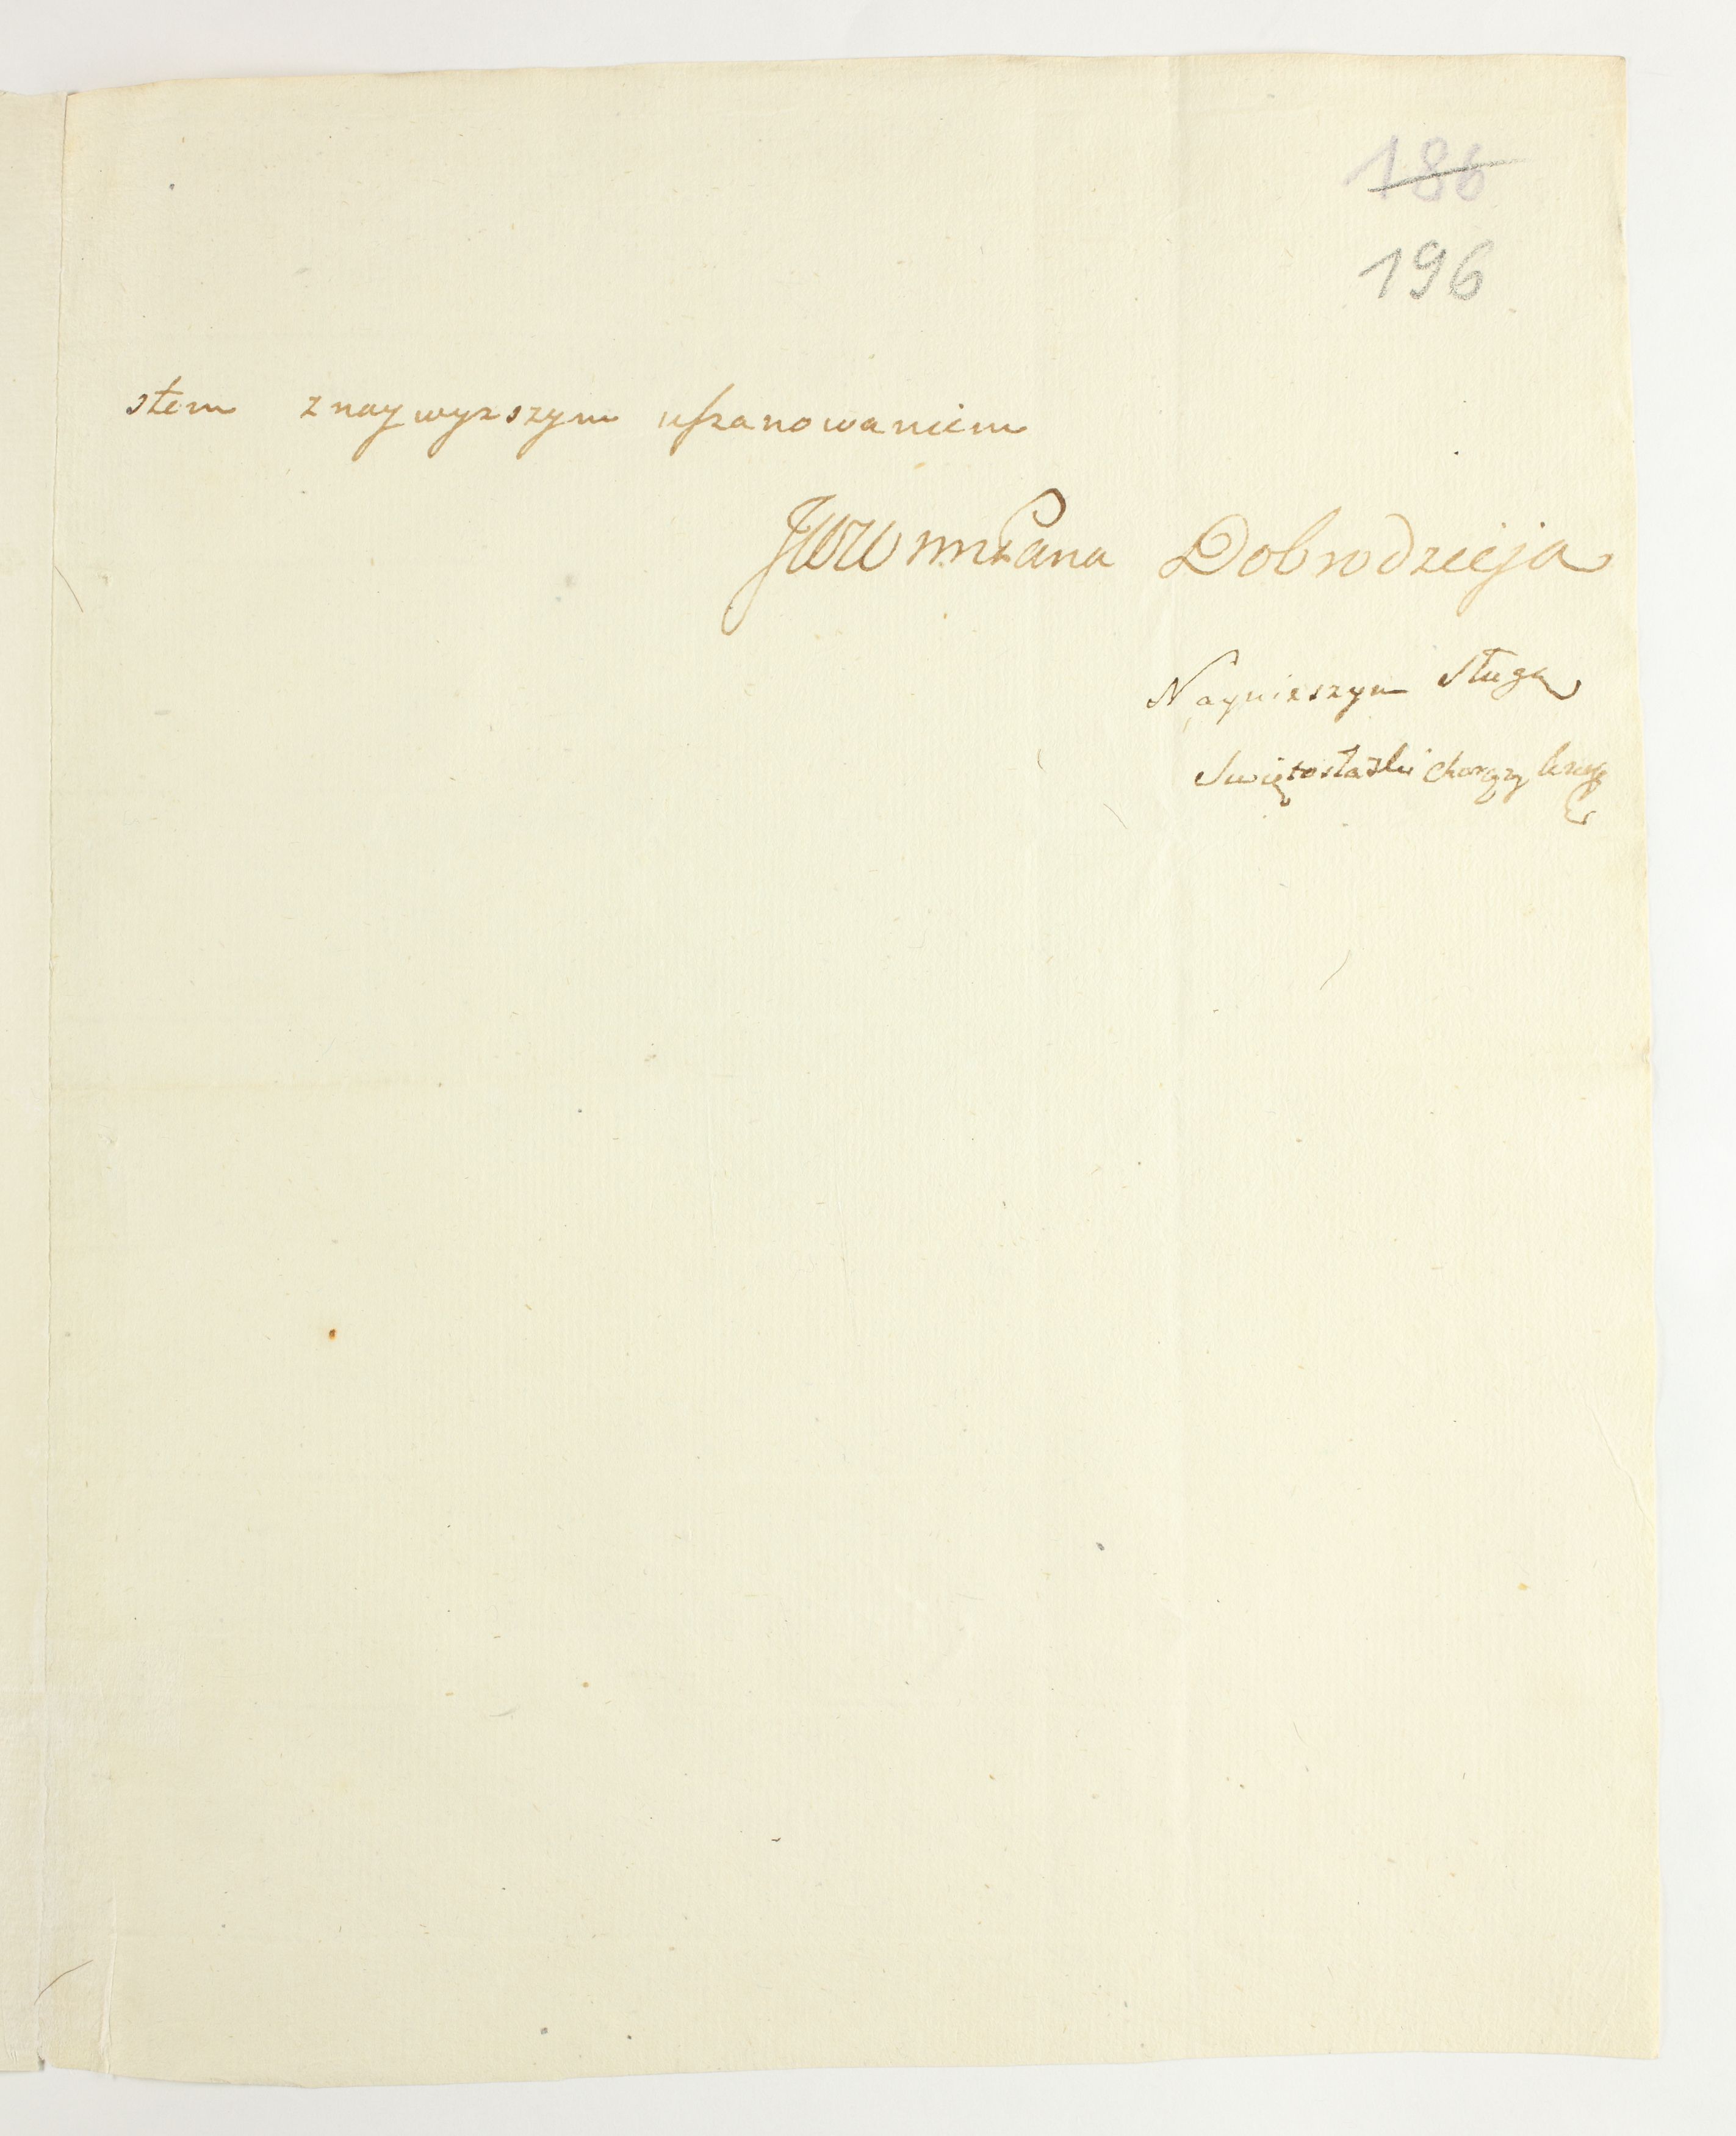 186
196
stem z naywyższym uszanowaniem
JWW mm Pana Dobrodzieja
Nayniższym Sługą
Swiętosławski Chorąży